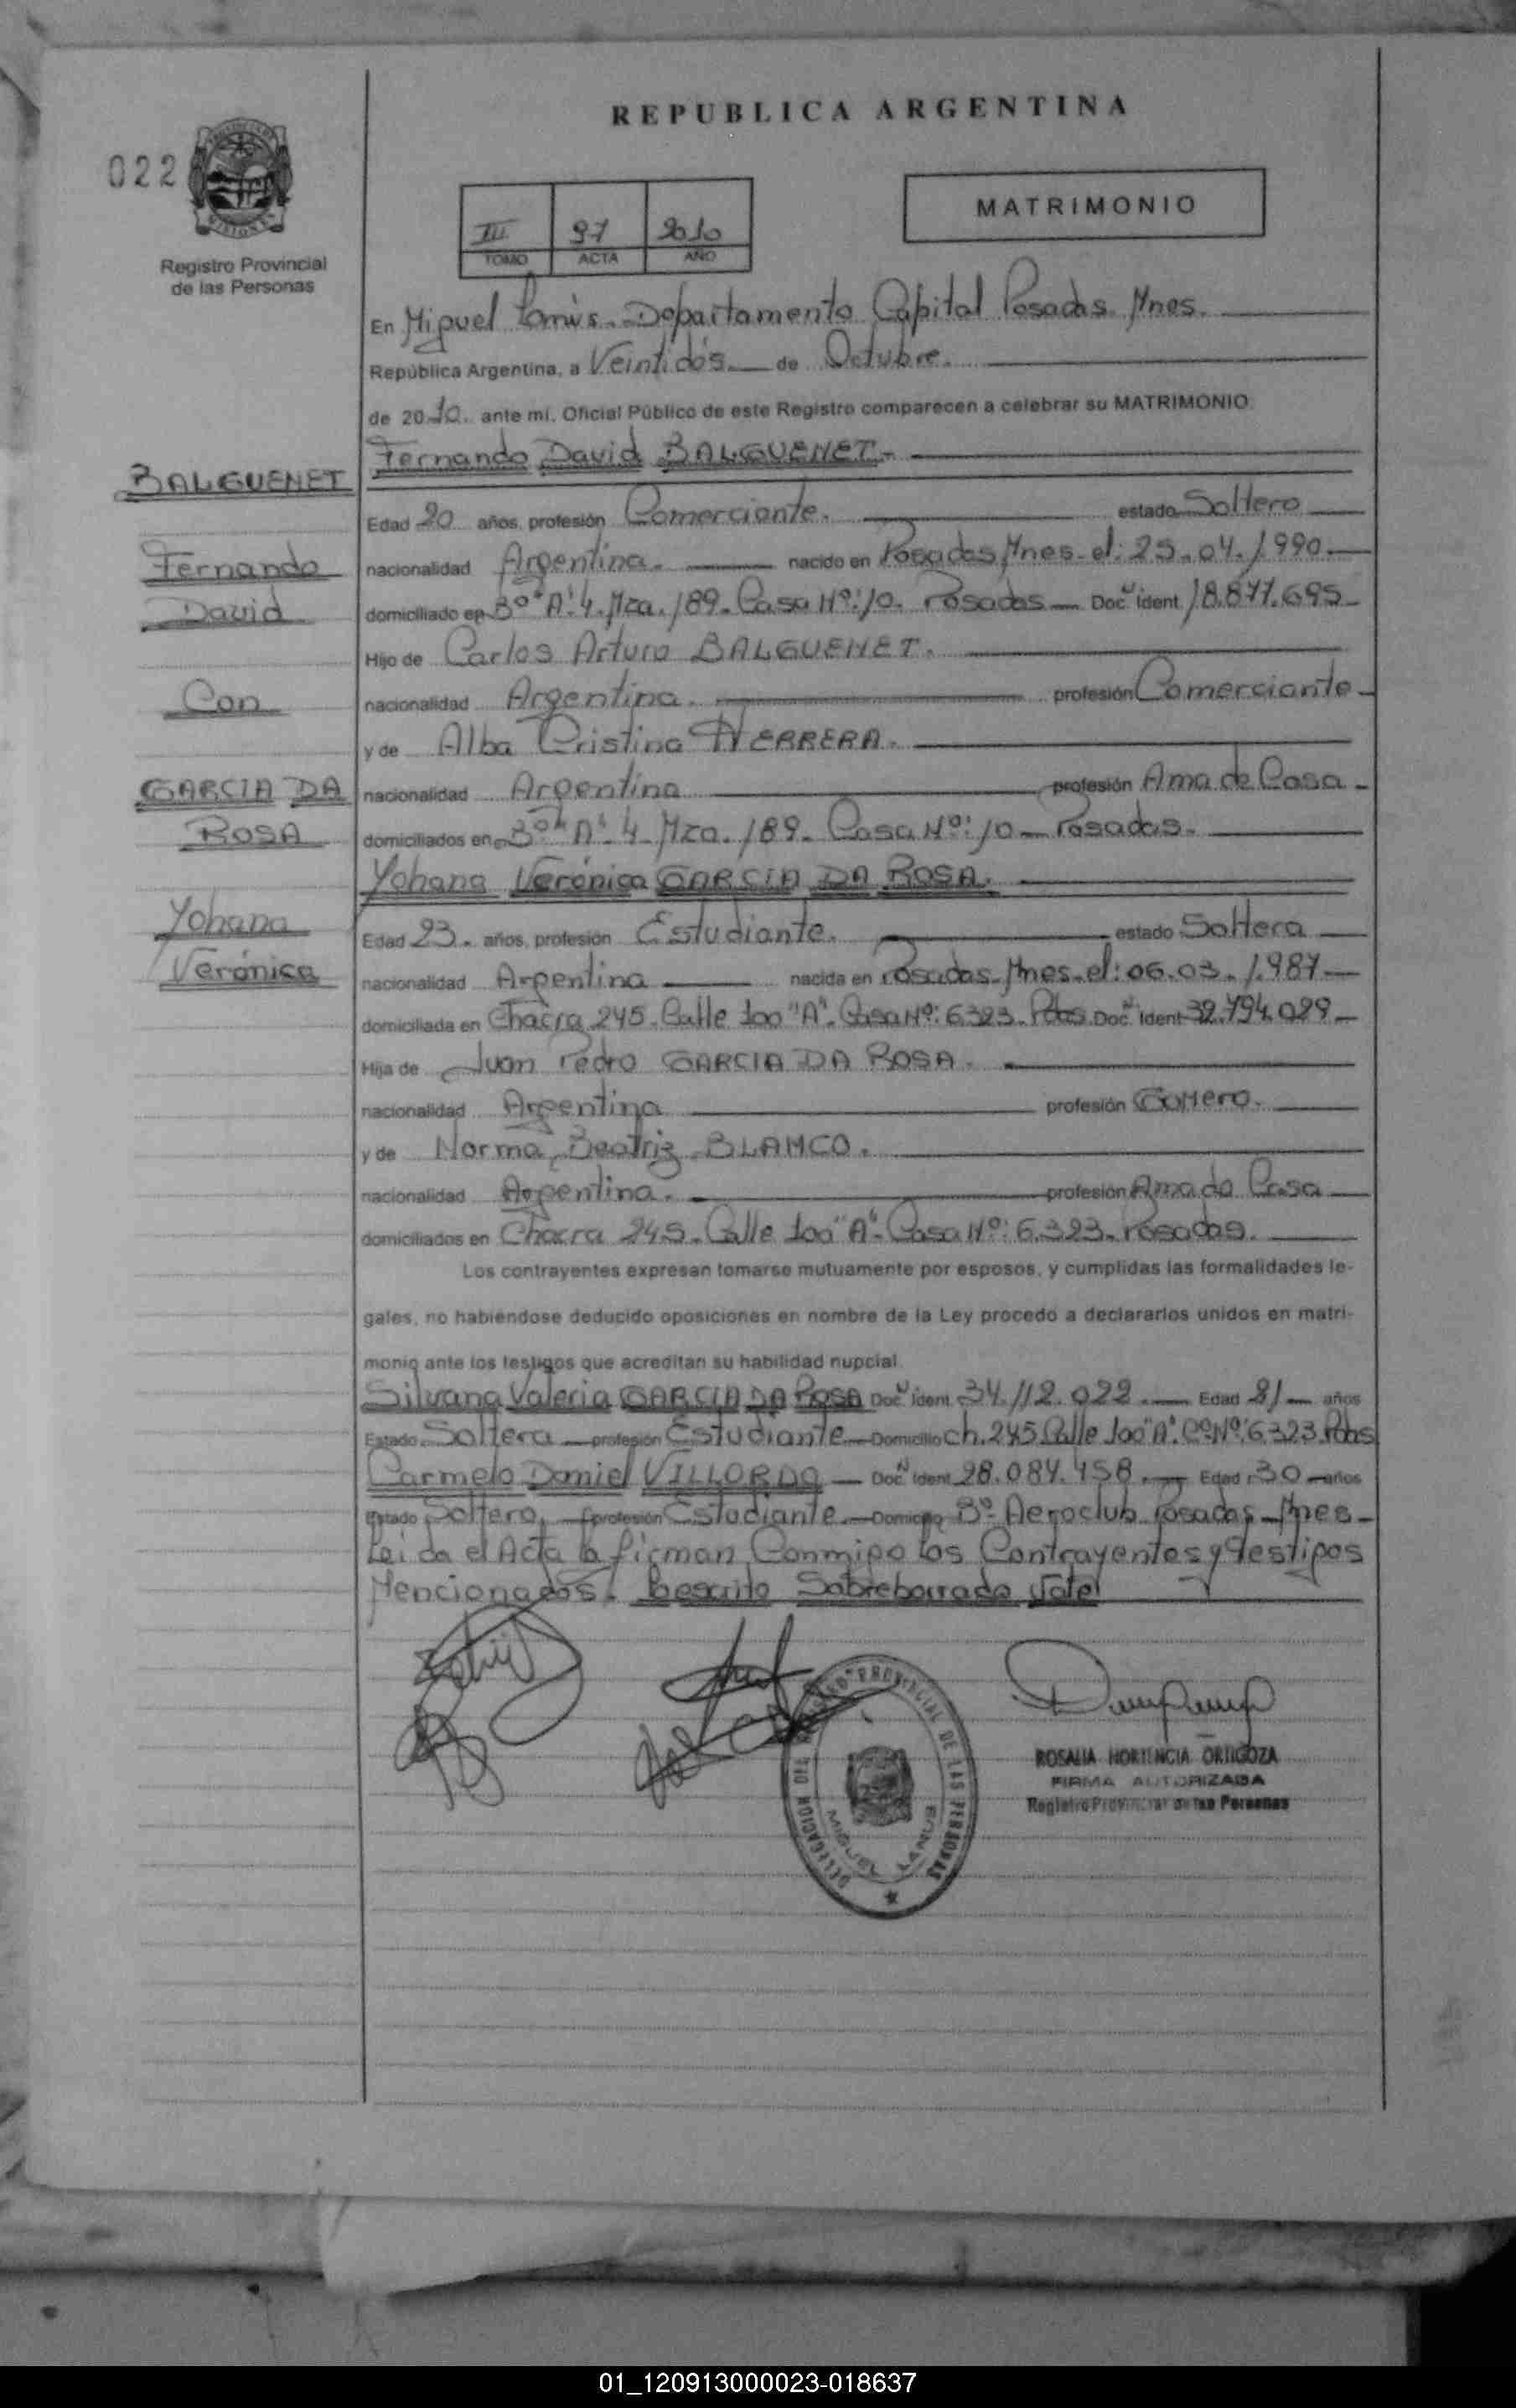 REPUBLICA ARGENTINA
022
MATRIMONIO
III 97 2010
TOMO ACTA AÑO
Registro Provincial
de las Personas
En Miguel Lanús. Departamento Capital Posadas. Mnes.
República Argentina, a Veintidós de Octubre.
de 2010. ante mí. Oficial Público de este Registro comparecen a celebrar su MATRIMONIO
Fernando David BALGUENET.-
BALGUENET
Edad 20 años, profesión Comerciante. estado Soltero
Fernando
nacionalidad Argentina. nacido en Posadas, Mnes. el: 25.04.1990.
David
domiciliado en Bº "A" 4. Mza. 189. Casa Nº: 10. Posadas Doc. Ident 18.877.695
Hijo de Carlos Arturo BALGUENET.
Con
nacionalidad Argentina. profesión Comerciante
y de Alba Cristina HERRERA.
GARCIA DA
nacionalidad Argentina profesión Ama de Casa
ROSA
domiciliados en Bº "A" 4 Mza. 189. Casa Nº: 10 Posadas.
Yohana Verónica GARCIA DA ROSA.
Yohana
Edad 23. años, profesión Estudiante. estado Soltera
Verónica
nacionalidad Argentina nacida en Posadas. Mnes. el: 06.03.1.987
domiciliada en Chacra 245. Calle 100 "A". Casa Nº: 6323. Pdas. Doc. Ident 32.794.029
Hija de Juan Pedro GARCIA DA ROSA.
nacionalidad Argentina profesión Gomero.
y de Norma Beatriz BLANCO.
nacionalidad Argentina. profesión Ama de Casa
domiciliados en Chacra 245. Calle 100 "A". Casa Nº: 6.323. Posadas.
Los contrayentes expresan tomarse mutuamente por esposos, y cumplidas las formalidades le-
gales, no habiéndose deducido oposiciones en nombre de la Ley procedo a declararlos unidos en matri-
monio ante los testigos que acreditan su habilidad nupcial.
Silvana Valeria GARCIA DA ROSA Doc. Ident. 34.112.022. Edad 21 años
Estado Soltera profesión Estudiante Domicilio Ch. 245 Calle 100 "A". Cª Nº: 6323 Pdas
Carmelo Daniel VILLORDO Doc. Ident 28.084.458. Edad: 30 años
Estado Soltero, profesión Estudiante. Domicilio Bº Aeroclub Posadas Mnes
Leída el Acta la firman Conmigo los Contrayentes y Testigos
Mencionados. Lo escrito Sobreborrado Vale
DELEGACION DEL REGISTRO PROVINCIAL DE LAS PERSONAS
MIGUEL LANUS
ROSALIA HORTENCIA ORTIGOZA
FIRMA AUTORIZADA
Registro Provincial de las Personas
01_120913000023-018637